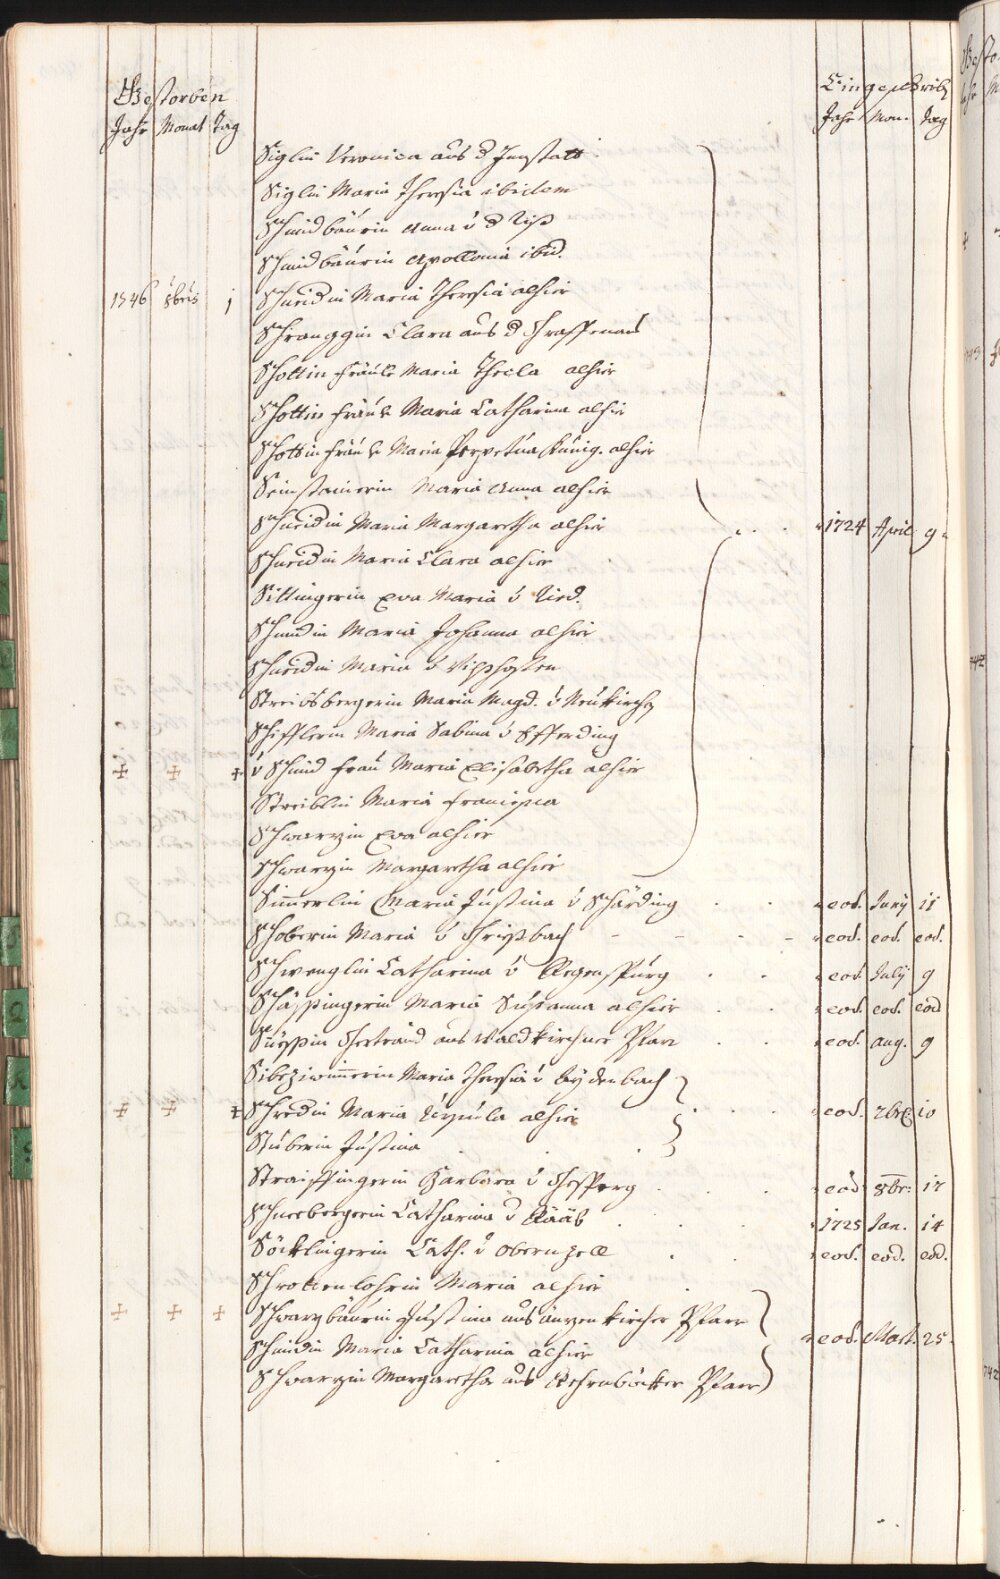 Gestorben
Jahr Monat Tag
Eingeschrib:
Jahr Mon. Tag
Siglin Veronica aus d Innstatt
Siglin Maria Theresia ibidem
Schmidbäurin Anna v d
Schmidbäurin Apollonia ibid.
1746 8bris 1 Schneidin Maria Theresia alhier
Schranggin Clara aus d
Schottin Fräule Maria Thecla alhier
Schottin Fräule Maria Catharina alhier
Schottin Fräule Maria Perpetua Kunig. alhier
Seinstainerin Maria Anna alhier
Schneidin Maria Margaretha alhier 1724 April 9
Schneidin Maria Clara alhier
Sittingerin Eva Maria v Ried.
Schmidin Maria Johanna alhier
Schneidin Maria v Vilßhofen
Maria Magd. v Neukirch
Schifflerin Maria Sabina v Efferding
+ + + v Schmid Frau Maria Elisabetha alhier
Streiblin Maria Francisca
Schwarzin Eva alhier
Schwarzin Margaretha alhier
Simerlin Maria Justina v Schärding eod. Juny 11
Schoberin Maria v Griesbach eod. eod. eod.
Schwenglin Catharina v Regenspurg eod. July 9
Maria Susanna alhier eod. eod. eod
Gertraud aus Waldkirchner Pfarr eod. Aug. 9
Maria Theresia v
+ + + Schredin Maria Ursula alhier eod. 7bre 10
Stüberin Justina
Barbara v eod: 8br: 17
Schneebergerin Catharina v Rääb 1725 Jan. 14
Söcklingerin Cath. v Obernzell eod. eod. eod.
Schrottenlohrin Maria alhier
+ + + Schwarzbäurin Justina aus Pfarr
Schmidin Maria Catharina alhier eod. Mart. 25
Schwarzin Margaretha aus Pfarr